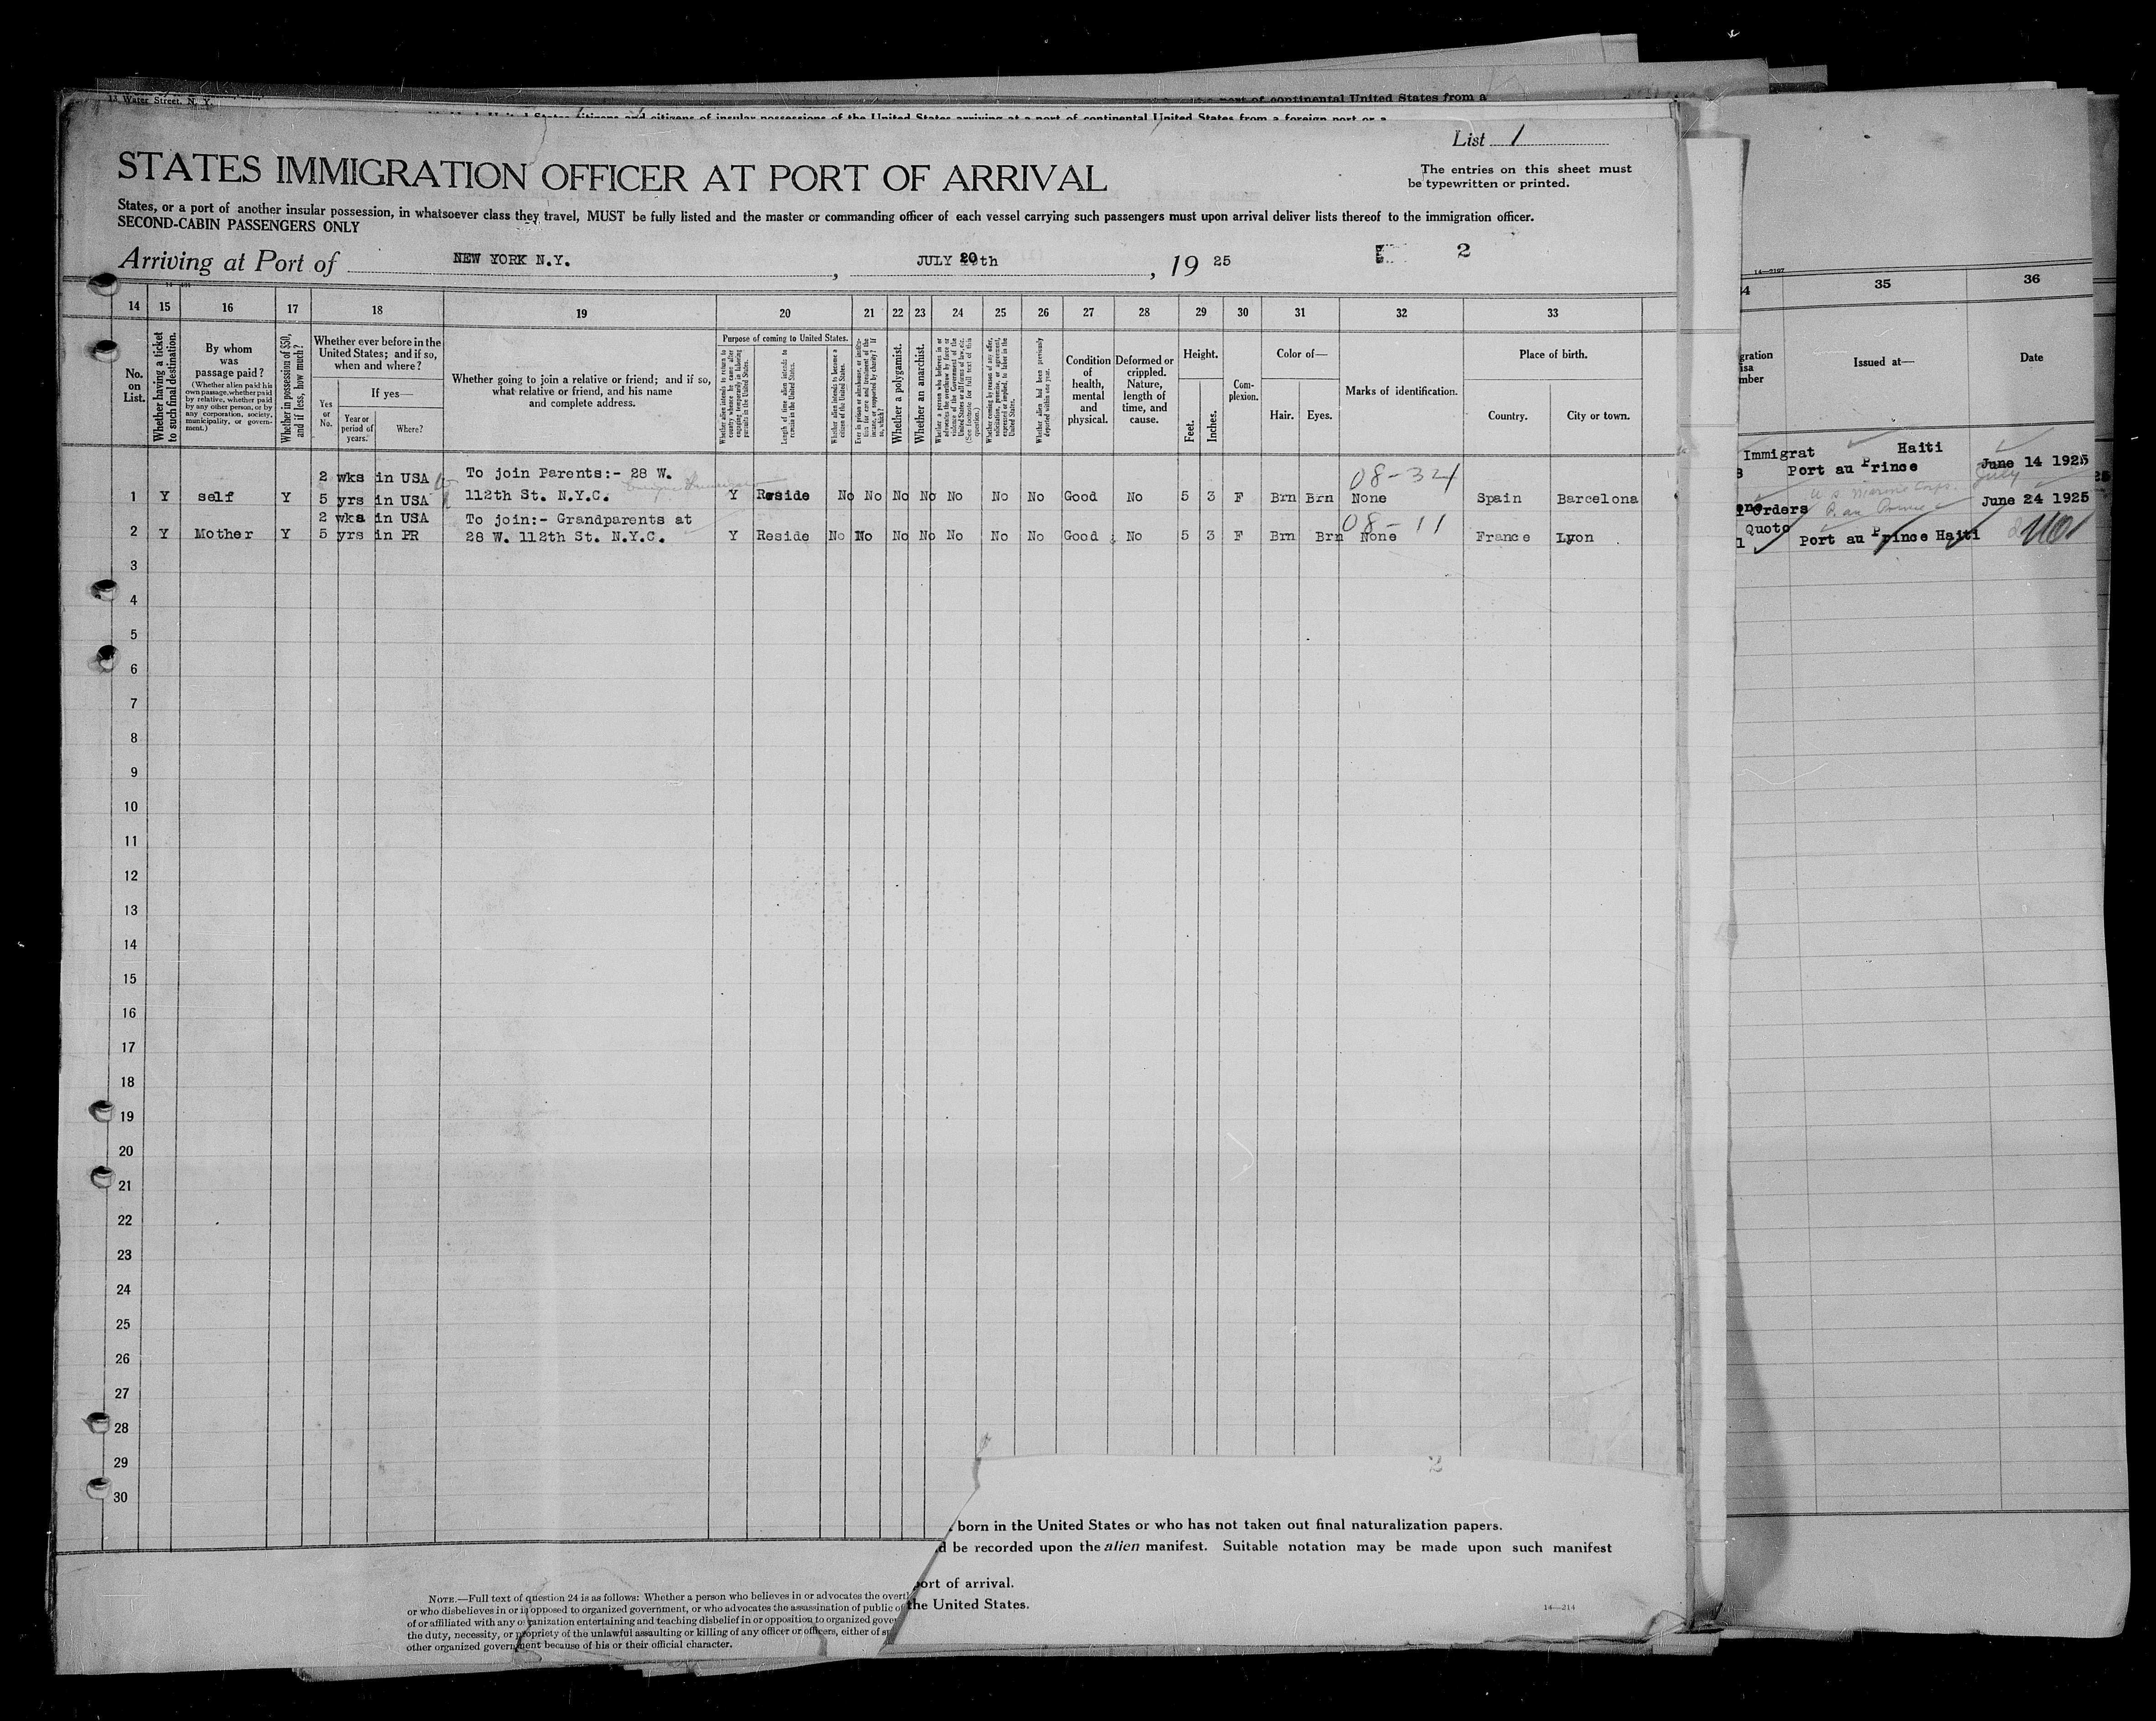 11 Water Street, N. Y.
port of continental United States from a
United States citizens and citizens of insular possessions of the United States arriving at a port of continental United States from a foreign port or a
List 1
STATES IMMIGRATION OFFICER AT PORT OF ARRIVAL
The entries on this sheet must
be typewritten or printed.
States, or a port of another insular possession, in whatsoever class they travel, MUST be fully listed and the master or commanding officer of each vessel carrying such passengers must upon arrival deliver lists thereof to the immigration officer.
SECOND-CABIN PASSENGERS ONLY
Arriving at Port of NEW YORK N.Y. , JULY 20th , 19 25 2
14—2197
14 15 16 17 18 19 20 21 22 23 24 25 26 27 28 29 30 31 32 33 35 36
No. on List.
Whether having a ticket to such final destination.
By whom was passage paid?
(Whether alien paid his own passage, whether paid by relative, whether paid by any other person, or by any corporation, society, municipality, or government.)
Whether in possession of $50, and if less, how much?
Whether ever before in the United States; and if so, when and where?
Yes or No.
If yes—
Year or period of years.
Where?
Whether going to join a relative or friend; and if so, what relative or friend, and his name and complete address.
Purpose of coming to United States.
Whether alien intends to return to country whence he came after engaging temporarily in laboring pursuits in the United States.
Length of time alien intends to remain in the United States.
Whether alien intends to become a citizen of the United States.
Ever in prison or almshouse, or institution for care and treatment of the insane, or supported by charity? If so, which?
Whether a polygamist.
Whether an anarchist.
Whether a person who believes in or advocates the overthrow by force or violence of the Government of the United States or all forms of law, etc. (See footnote for full text of this question.)
Whether coming by reason of any offer, solicitation, promise, or agreement, expressed or implied, to labor in the United States.
Whether alien had been previously deported within one year.
Condition of health, mental and physical.
Deformed or crippled. Nature, length of time, and cause.
Height.
Feet.
Inches.
Complexion.
Color of—
Hair.
Eyes.
Marks of identification.
Place of birth.
Country.
City or town.
Issued at—
Date
2 wks in USA To join Parents:- 28 W. 08-34
1 Y self Y 5 yrs in USA 112th St. N.Y.C. Y Reside No No No No No No No Good No 5 3 F Brn Brn None Spain Barcelona
2 wks in USA To join:- Grandparents at 08-11
2 Y Mother Y 5 yrs in PR 28 W. 112th St. N.Y.C. Y Reside No No No No No No No Good No 5 3 F Brn Brn None France Lyon
Immigrat Haiti
Port au Prince June 14 1925
July
U S Marine Corps.
Orders P. au Prince June 24 1925
Quoto
Port au Prince Haiti
3
4
5
6
7
8
9
10
11
12
13
14
15
16
17
18
19
20
21
22
23
24
25
26
27
28
29
30
2
born in the United States or who has not taken out final naturalization papers.
be recorded upon the alien manifest. Suitable notation may be made upon such manifest
port of arrival.
the United States.
14—214
NOTE.—Full text of question 24 is as follows: Whether a person who believes in or advocates the overt
or who disbelieves in or is opposed to organized government, or who advocates the assassination of public of
of or affiliated with any organization entertaining and teaching disbelief in or opposition to organized gover
the duty, necessity, or propriety of the unlawful assaulting or killing of any officer or officers, either of s
other organized government because of his or their official character.